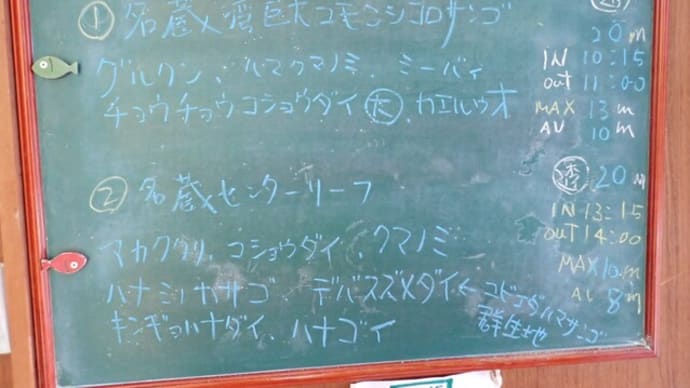 ① 名蔵×湾巨大コモンシコロサンゴ
グルクン、ハマクマノミ、ミーバイ
チョウチョウコショウダイ 大 カエルウオ
透 20m
IN 10:15
out 11:00
MAX 13m
AV 10m
② 名蔵×センターリーフ
マカククリ、コショウダイ、クマノミ
ハナミノカサゴ デバスズメダイ← コドエダハマサンゴ
キンギョハナダイ、ハナゴイ 群生地
透 20m
IN 13:15
OUT 14:00
MAX 10m
AV 8m